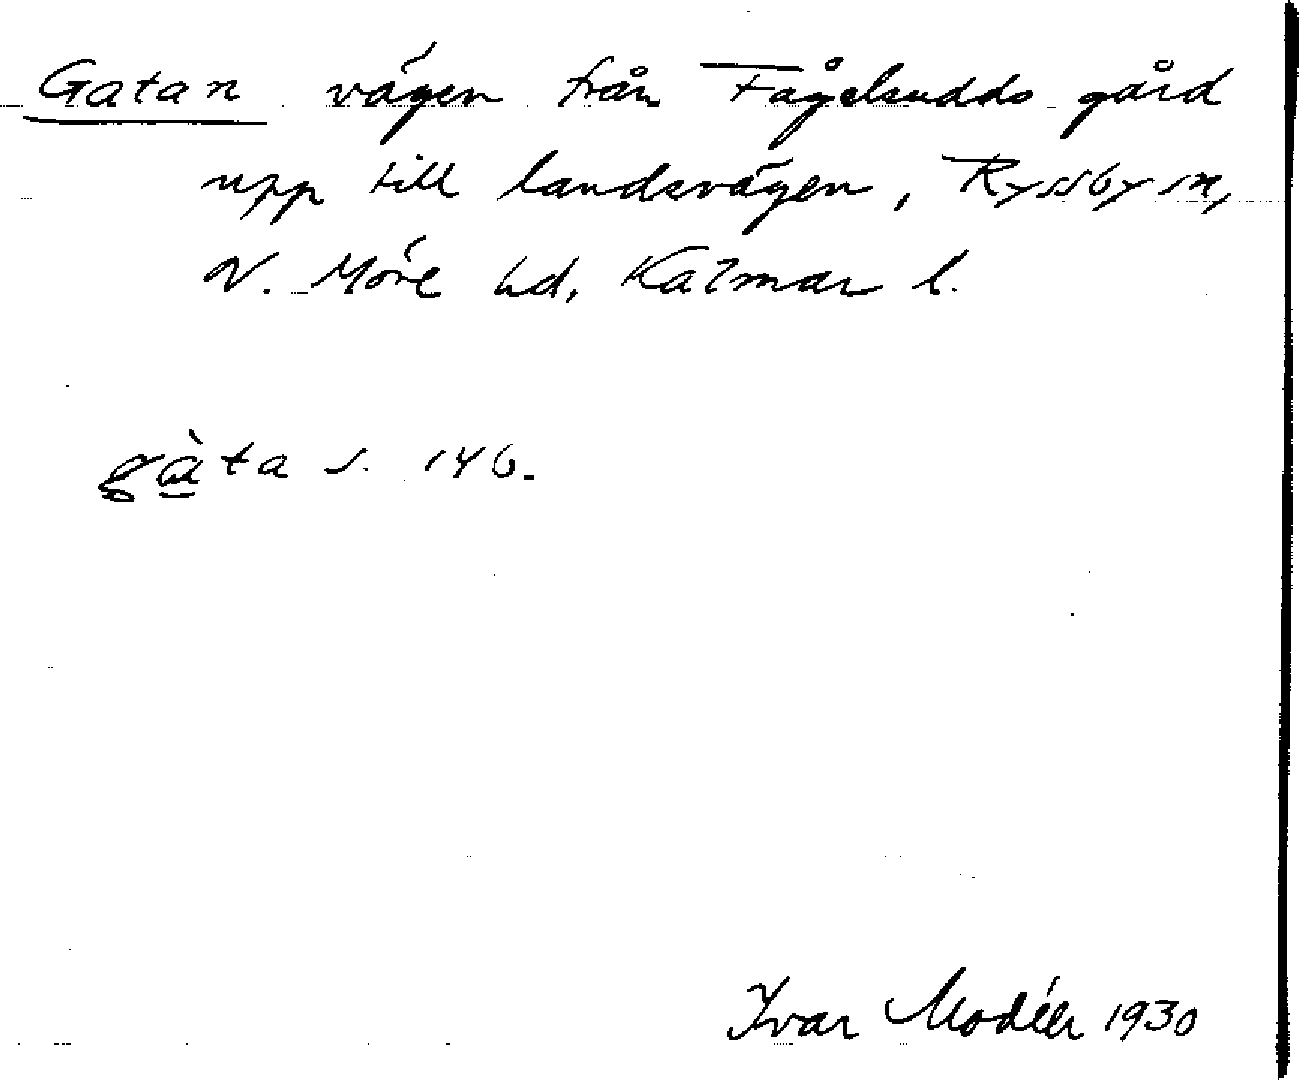 Gatan vägen från Fågelsudds gård
upp till landsvägen, Ryssby sn,
N. Möre hd, Kalmar l.
gàta s. 146.
Ivar Modéer 1930